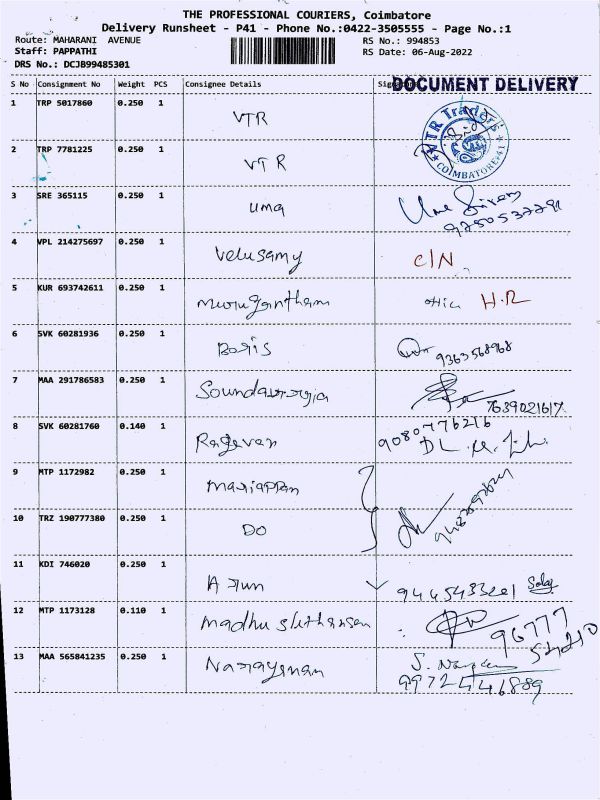 THE PROFESSIONAL COURIERS, Coimbatore
Delivery Runsheet - P41 - Phone No.:0422-3505555 - Page No.:1
Route: MAHARANI AVENUE
RS No.: 994853
Staff: PAPPATHI
RS Date: 06-Aug-2022
DRS No.: DCJB99485301
S No Consignment No Weight PCS Consignee Details
DOCUMENT DELIVERY
1 TRP 5017860 0.250 1 VTR
VTR Traders
COIMBATORE-41
2 TRP 7781225 0.250 1 VTR
3 SRE 365115 0.250 1 uma
4 VPL 214275697 0.250 1 Velusamy C/N
5 KUR 693742611 0.250 1 Murugantham H.R
6 SVK 60281936 0.250 1 Boris
9363568968
7 MAA 291786583 0.250 1
7639021617
8 SVK 60281760 0.140 1 Ragavan
9080776216
9 MTP 1172982 0.250 1 Mariappan
10 TRZ 190777380 0.250 1 DO
11 KDI 746020 0.250 1 Arun
12 MTP 1173128 0.110 1
96777
54210
13 MAA 565841235 0.250 1 Narayanan
9972446889